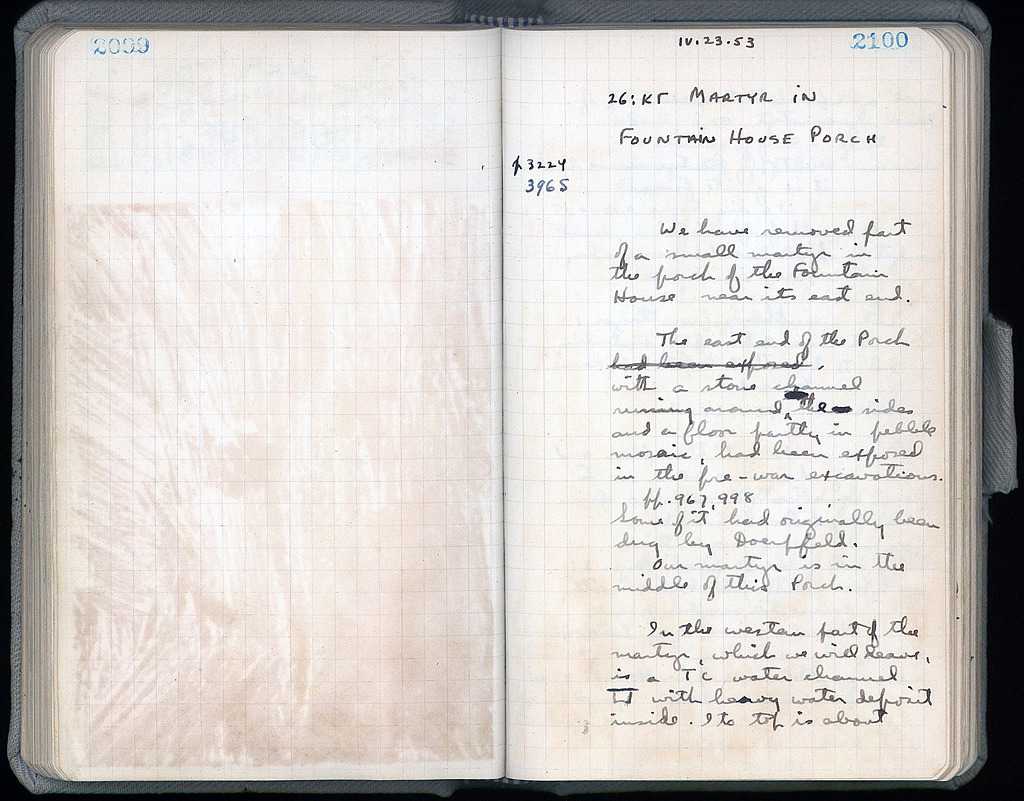 2099
IV.23.53
2100
26:KΓ MARTYR IN
FOUNTAIN HOUSE PORCH
p 3224
3965
We have removed part
of a small martyr in
the porch of the Fountain
House near its east end.
The east end of the Porch
had been exposed,
with a stone channel
running around the sides
and a floor partly in pebble
mosaic, had been exposed
in the pre-war excavations.
pp. 967, 998
Some of it had originally been
dug by Doerpfeld.
Our martyr is in the
middle of this Porch.
In the western part of the
martyr, which we will leave,
is a TC water channel
with heavy water deposit
inside. Its top is about